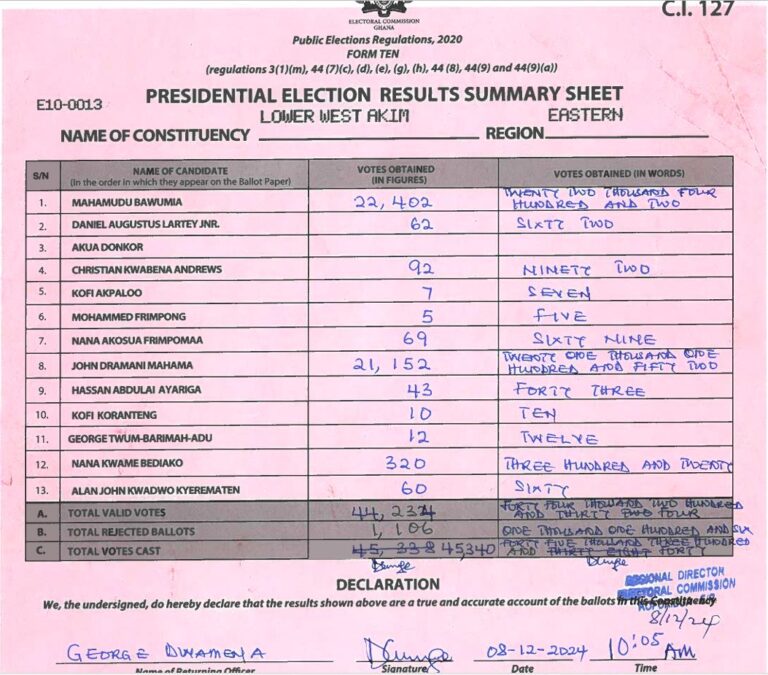 C.I. 127
ELECTORAL COMMISSION
GHANA
Public Elections Regulations, 2020
FORM TEN
(regulations 3(1)(m), 44 (7)(c), (d), (e), (g), (h), 44 (8), 44(9) and 44(9)(a))
E10-0013
PRESIDENTIAL ELECTION RESULTS SUMMARY SHEET
NAME OF CONSTITUENCY LOWER WEST AKIM REGION EASTERN
S/N NAME OF CANDIDATE (In the order in which they appear on the Ballot Paper) VOTES OBTAINED (IN FIGURES) VOTES OBTAINED (IN WORDS)
1. MAHAMUDU BAWUMIA 22,402 TWENTY TWO THOUSAND FOUR HUNDRED AND TWO
2. DANIEL AUGUSTUS LARTEY JNR. 62 SIXTY TWO
3. AKUA DONKOR
4. CHRISTIAN KWABENA ANDREWS 92 NINETY TWO
5. KOFI AKPALOO 7 SEVEN
6. MOHAMMED FRIMPONG 5 FIVE
7. NANA AKOSUA FRIMPOMAA 69 SIXTY NINE
8. JOHN DRAMANI MAHAMA 21,152 TWENTY ONE THOUSAND ONE HUNDRED AND FIFTY TWO
9. HASSAN ABDULAI AYARIGA 43 FORTY THREE
10. KOFI KORANTENG 10 TEN
11. GEORGE TWUM-BARIMAH-ADU 12 TWELVE
12. NANA KWAME BEDIAKO 320 THREE HUNDRED AND TWENTY
13. ALAN JOHN KWADWO KYEREMATEN 60 SIXTY
A. TOTAL VALID VOTES 44,234 FORTY FOUR THOUSAND TWO HUNDRED AND THIRTY TWO FOUR
B. TOTAL REJECTED BALLOTS 1,106 ONE THOUSAND ONE HUNDRED AND SIX
C. TOTAL VOTES CAST 45,338 45,340 FORTY FIVE THOUSAND THREE HUNDRED AND THIRTY EIGHT FORTY
DECLARATION
REGIONAL DIRECTOR
ELECTORAL COMMISSION
We, the undersigned, do hereby declare that the results shown above are a true and accurate account of the ballots in this Constituency
8/12/24
GEORGE DWAMENA 08-12-2024 10:05 AM
Name of Returning Officer Signature Date Time